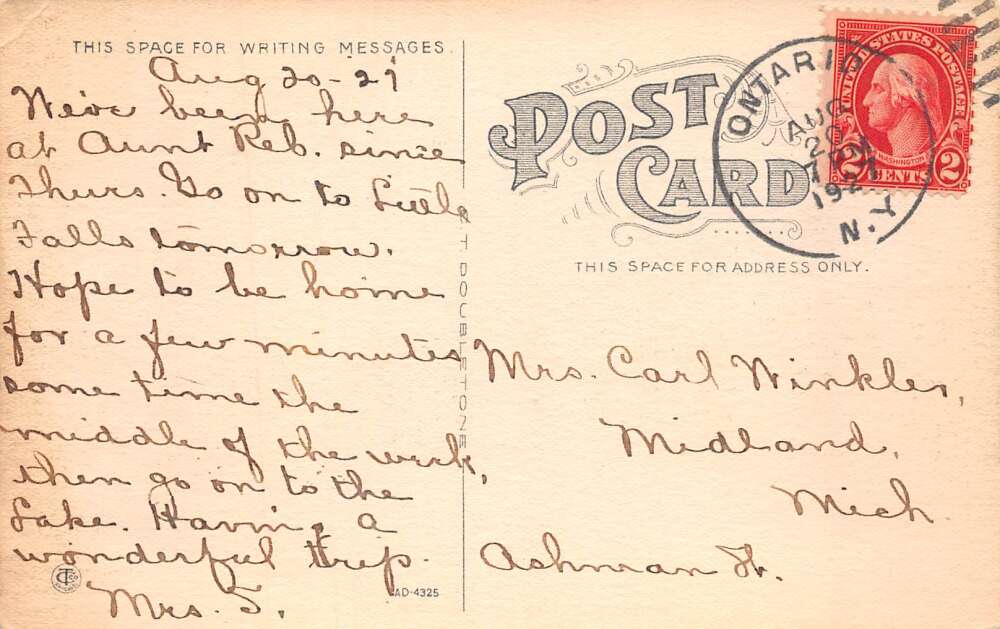 THIS SPACE FOR WRITING MESSAGES.
Aug 20-27
We've been here
at Aunt Reb. since
Thurs. Go on to Little
Falls tomorrow.
Hope to be home
for a few minutes
some time the
middle of the week,
then go on to the
Lake. Having a
wonderful trip.
Mrs. S.
AD-4325
POST
CARD
THIS SPACE FOR ADDRESS ONLY.
ONTARIO
AUG
20
7 PM
1927
N.Y.
UNITED STATES POSTAGE
WASHINGTON
2 CENTS 2
Mrs. Carl Winkler,
Midland,
Mich.
Ashman St.